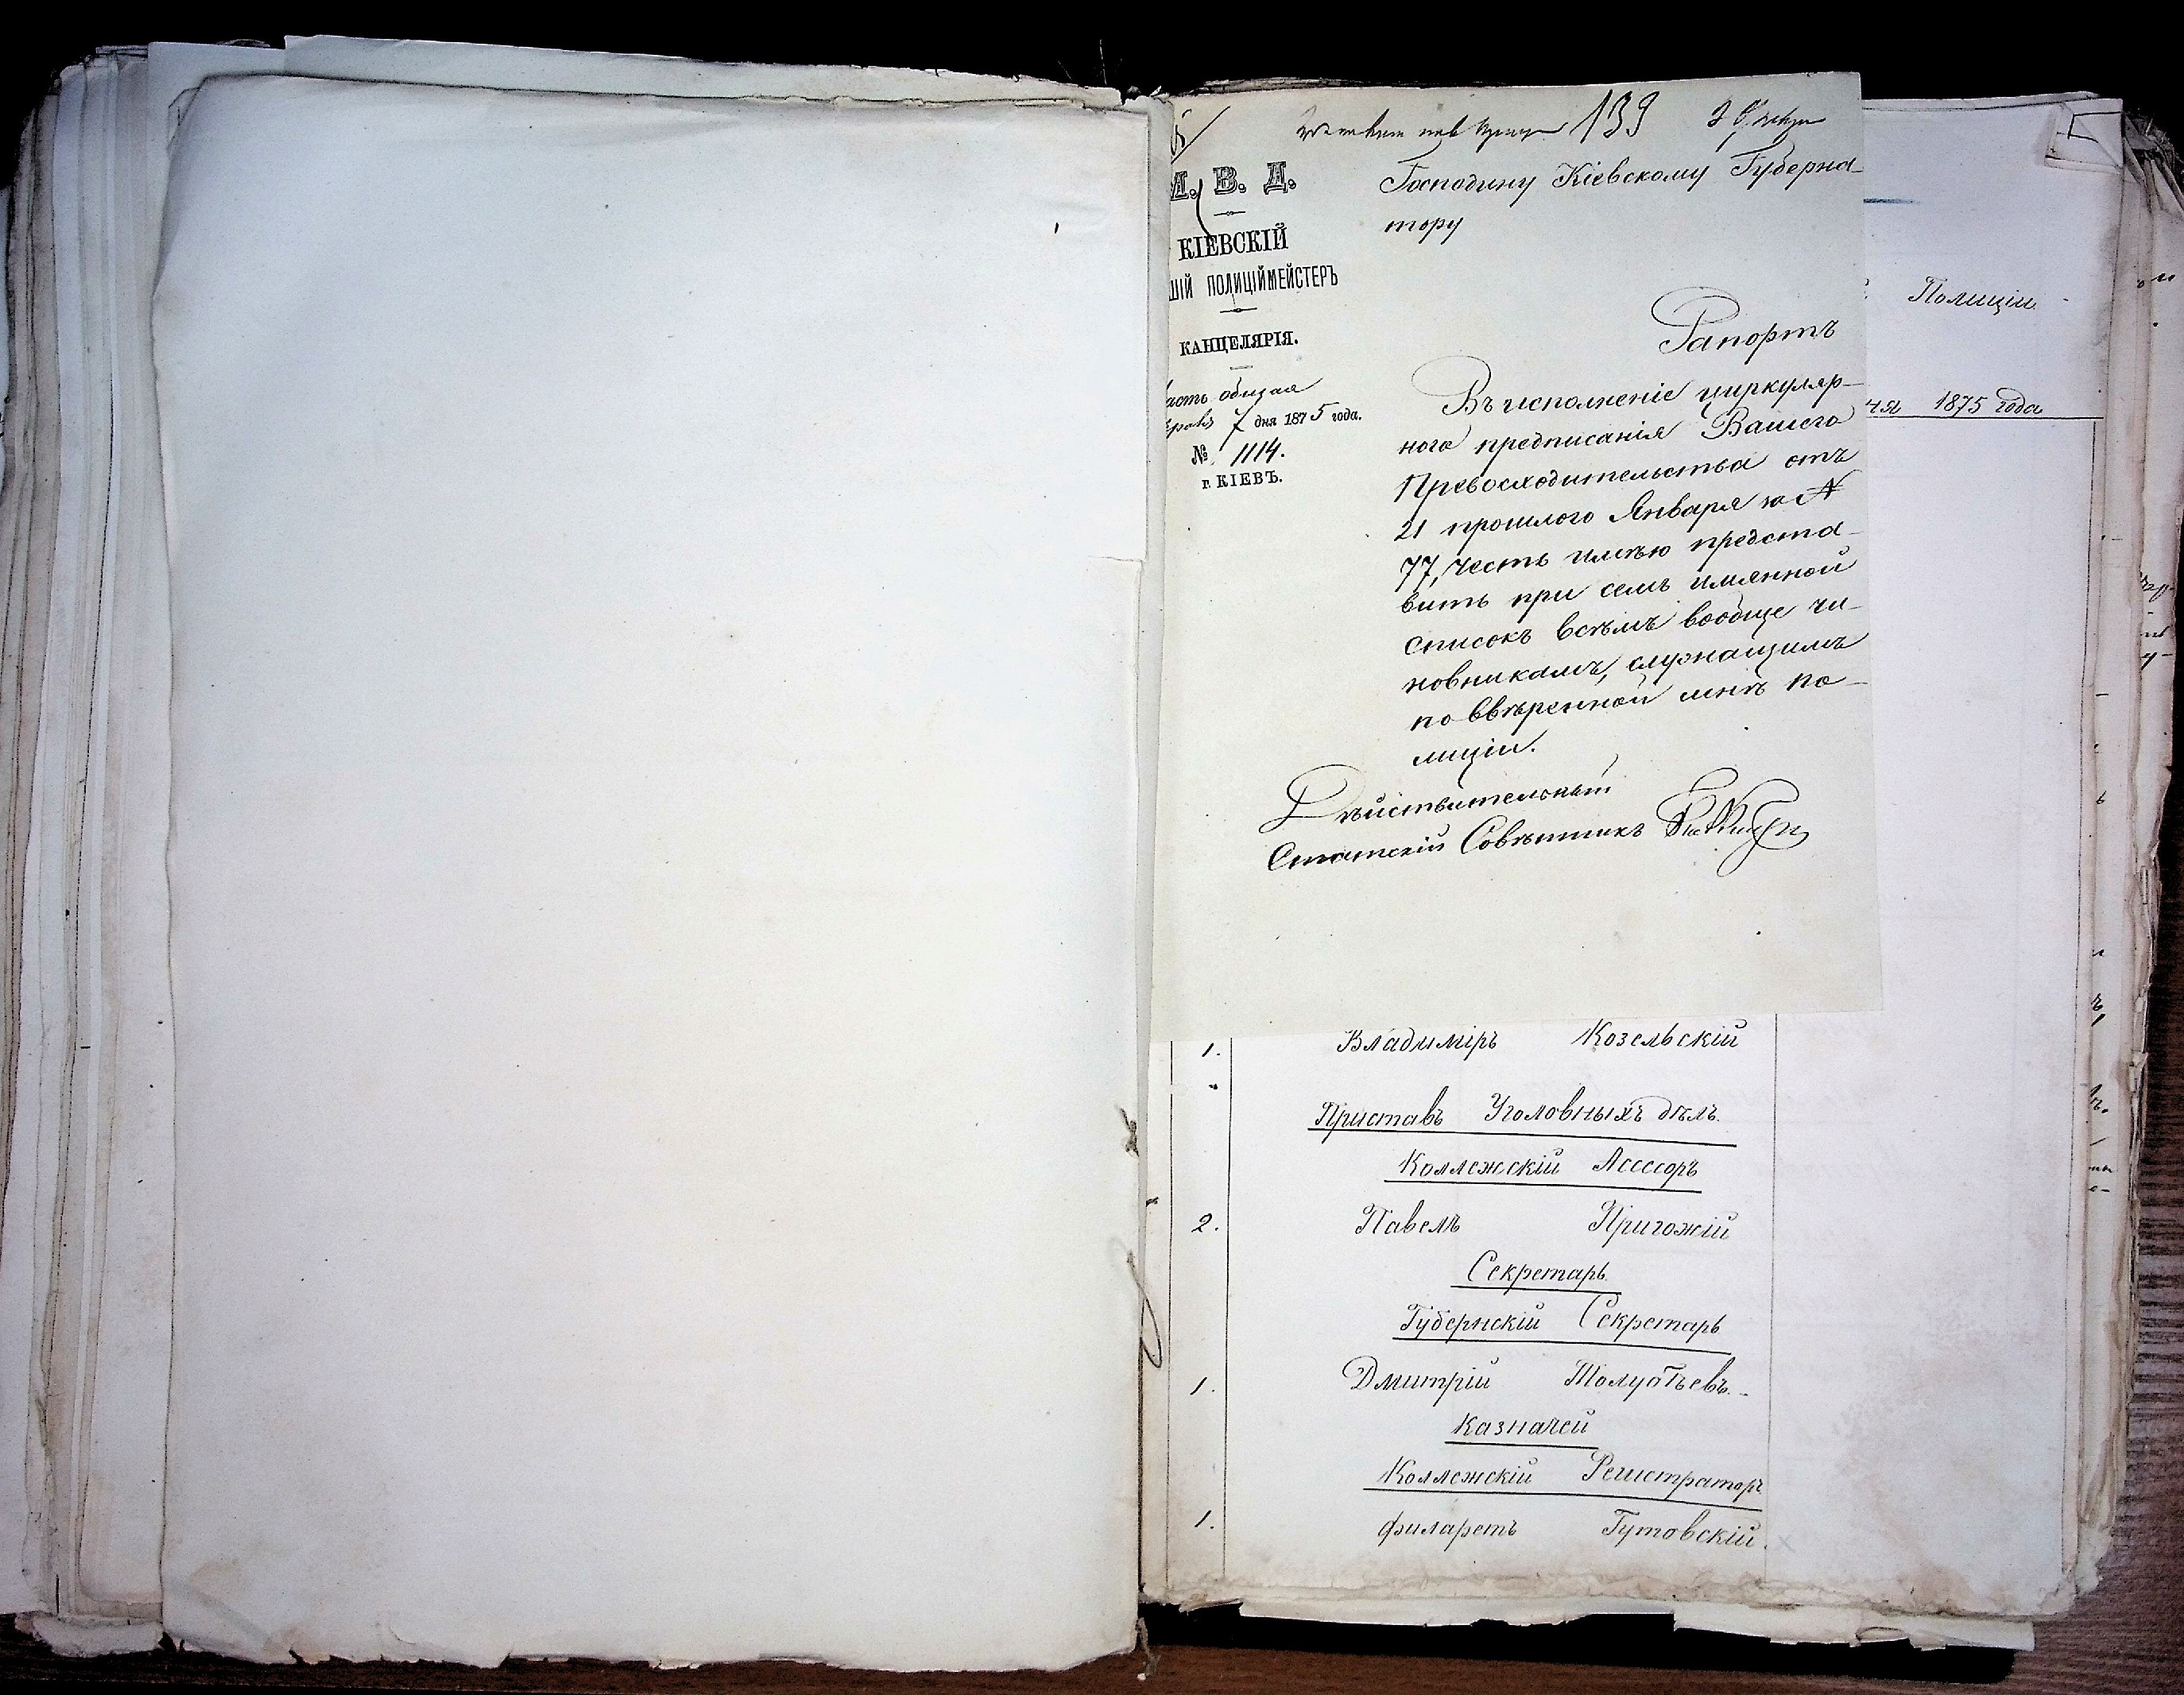 139
М. В. Д.
КІЕВСКІЙ
ШІЙ ПОЛИЦІЙМЕЙСТЕРЪ
КАНЦЕЛЯРІЯ.
асть общая
7 дня 1875 года.
№ 1114.
г. КІЕВЪ.
Господину Кіевскому Губерна-
тору
Рапортъ
Въ исполненіе циркуляр-
ного предписанія Вашего
Превосходительства отъ
21 прошлого Января за №
77, честь имѣю предста-
вить при семъ имянной
списокъ всѣмъ вообще чи-
новникамъ, служащимъ
по ввѣренной мнѣ по-
лиціи.
Дѣйствительный
Статскій Совѣтникъ
Полиціи
1875 года
1. Владиміръ Козельскій
Приставъ Уголовныхъ дѣлъ.
Коллежскій Ассесоръ
2. Павелъ Пригожій
Секретарь
Губернскій Секретарь
1. Дмитрій
Казначей
Коллежскій Регистраторъ
1. Филаретъ Гутовскій.